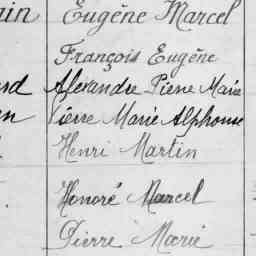 ain Eugène Marcel
François Eugène
nd Alexandre Pierre Marie
en Pierre Marie Alphonse
Henri Martin
Honoré Marcel
Pierre Marie